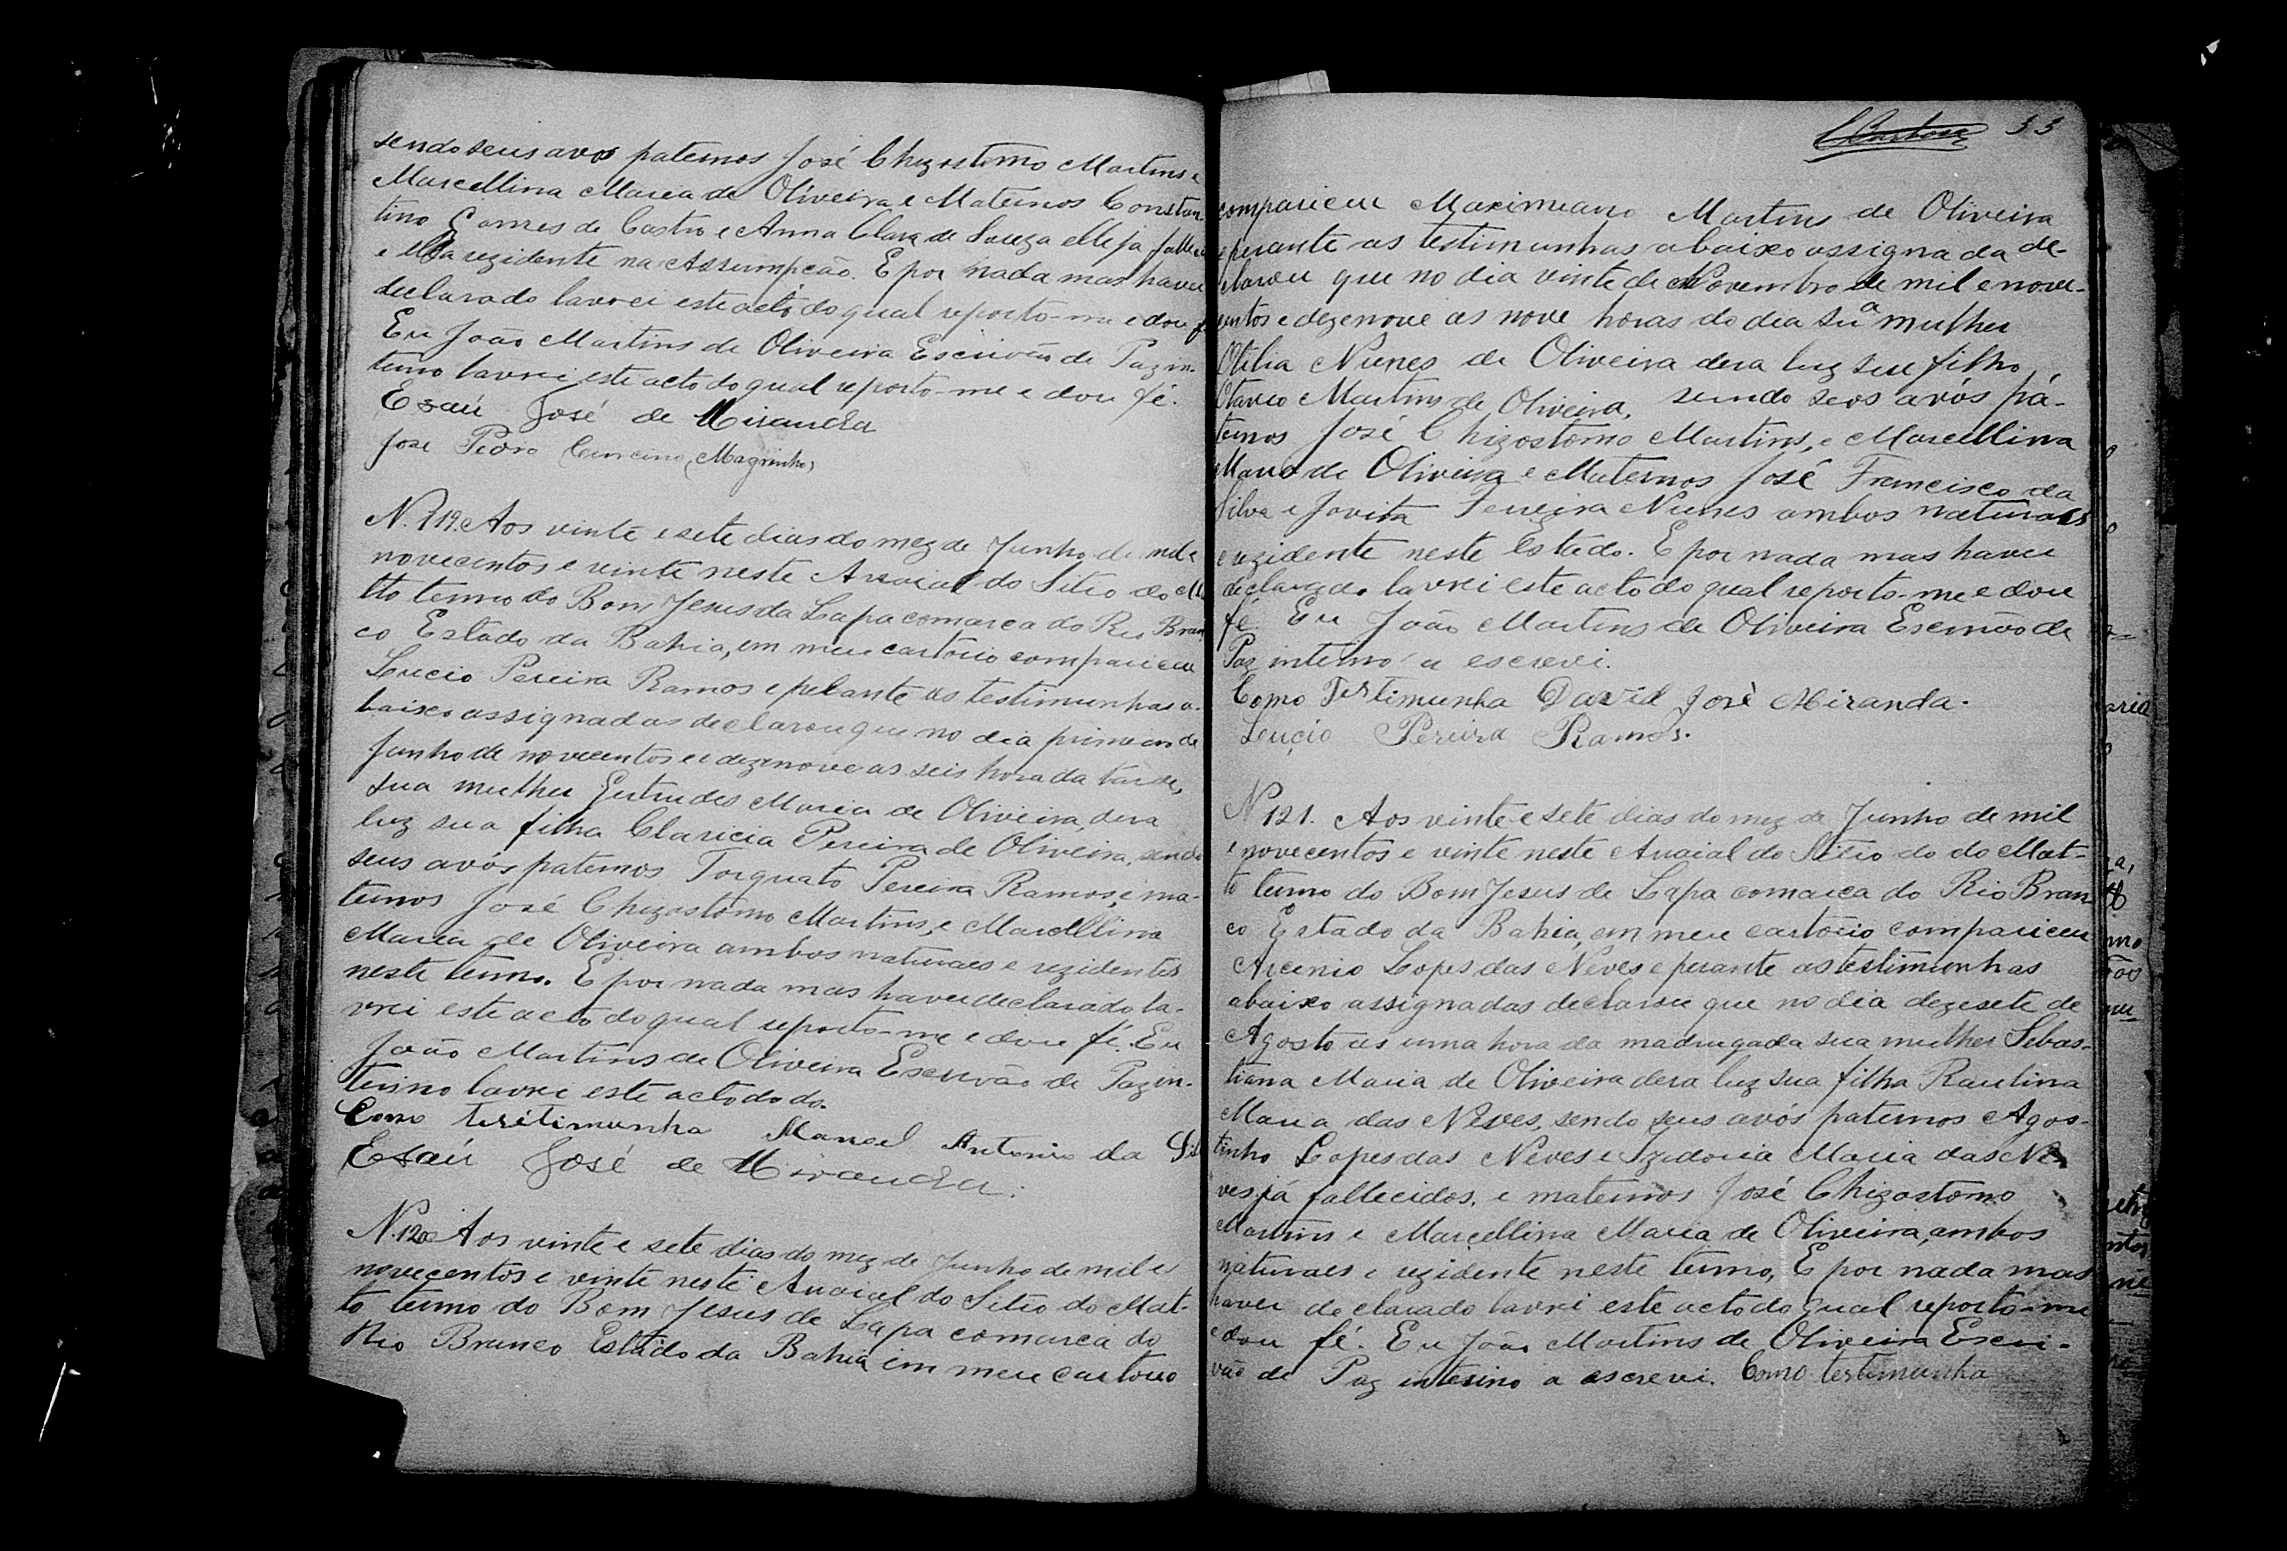 sendo seus avós paternos José Chizostomo Martins e
Marcellina Maria de Oliveira e Maternos Constan
tino Gomes de Castro e Anna Clara de Souza elle já falleci
e ella rezidente na Assumpção. E por nada mas haver
declarado lavrei este acto do qual reporto-me e dou f
Eu João Martins de Oliveira Escrivão de Paz in-
terino lavrei este acto do qual reporto-me e dou fé.
Esaú José de Miranda
José Pedro (Magrinho)
N. 119. Aos vinte e sete dias do mez de Junho de mil e
novecentos e vinte neste Arraial do Sitio do M
tto termo do Bom Jesus da Lapa comarca do Rio Bran
co Estado da Bahia, em meu cartorio compariceu
Lucio Pereira Ramos e perante as testimunhas a-
baixo assignadas declarou que no dia primeiro de
Junho de novecentos e dezenove as seis hora da tarde,
sua mulher Gertrudes Maria de Oliveira, dera
luz sua filha Claricia Pereira de Oliveira, sendo
seus avós paternos Torquato Pereira Ramos, e ma-
ternos José Chizostomo Martins, e Marcellina
Maria de Oliveira ambos naturaes e rezidentes
neste termo. E por nada mas haver declarado la-
vrei este acto do qual reporto-me e dou fé. Eu
João Martins de Oliveira Escrivão de Paz in-
terino lavrei este acto do do.
Como teritimunha Manoel Antonio da Sil
Esaú José de Miranda.
N. 120 Aos vinte e sete dias do mez de Junho de mil e
novecentos e vinte neste Arraial do Sitio do Mat-
to termo do Bom Jesus de Lapa comarca do
Rio Branco Estado da Bahia em meu cartorio
33
compariceu Maximiano Martins de Oliveira
e perante as testimunhas abaixo assignada de-
clarou que no dia vinte de Novembro de mil e nove-
centos e dezenove as nove horas do dia sua mulher
Otilia Nunes de Oliveira dera luz seu filho
Otavio Martins de Oliveira, sendo seos avós pá-
ternos José Chizostomo Martins, e Marcellina
Maria de Oliveira e Maternos José Francisco da
Silva e Jovita Ferreira Nunes ambos naturaes
e rezidente neste Estado. E por nada mas haver
declarado lavrei este acto do qual reporto-me e dou
fé. Eu João Martins de Oliveira Escrivão de
Paz interno a escrevi.
Como Testimunha David José Miranda.
Lucio Pereira Ramos.
N 121. Aos vinte e sete dias do mez de Junho de mil
e novecentos e vinte neste Arraial do Sitio do do Mat-
to termo do Bom Jesus de Lapa comarca do Rio Bran
co Estado da Bahia, em meu cartorio compariceu
Arcenio Lopes das Neves e perante as testimunhas
abaixo assignadas declarou que no dia dezesete de
Agosto as uma hora da madrugada sua mulher Sebas-
tiana Maria de Oliveira dera luz sua filha Raulina
Maria das Neves, sendo seus avós paternos Agos-
tinho Lopes das Neves e Izidoria Maria das Ne
ves já fallecidos, e maternos José Chizostomo
Martins e Marcellina Maria de Oliveira, ambos
naturaes e rezidente neste termo, E por nada mas
haver declarado lavrei este acto do qual reporto-me
e dou fé. Eu João Martins de Oliveira Escri-
vão de Paz interino a escrevi. Como testimunha